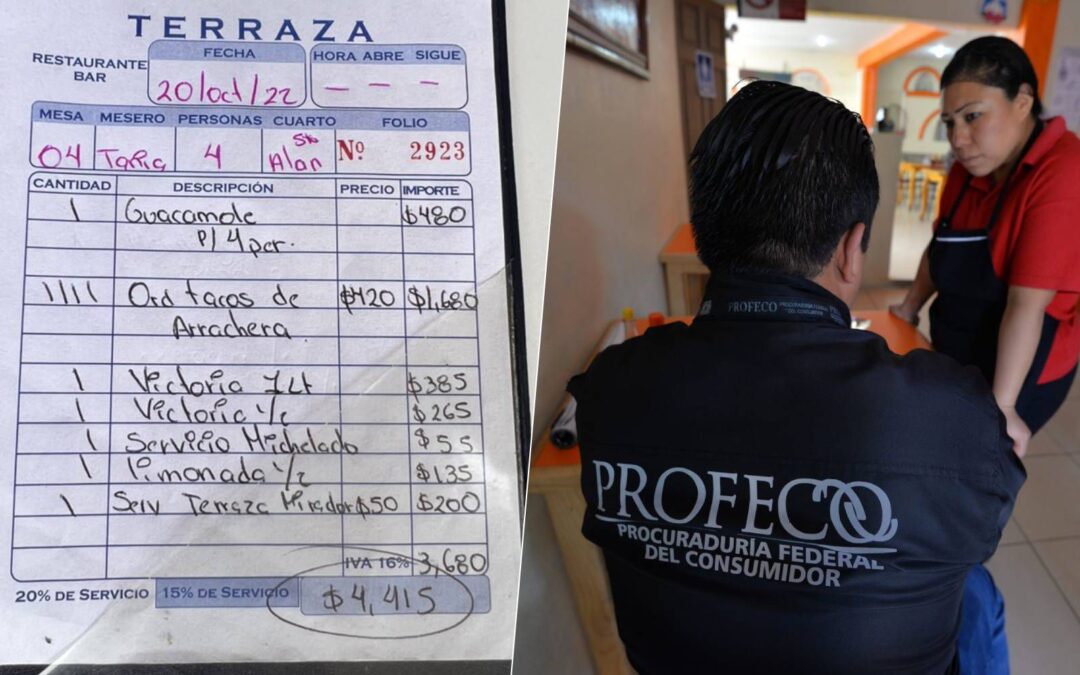 TERRAZA
RESTAURANTE
BAR
FECHA
HORA ABRE SIGUE
20/oct/22
MESA MESERO PERSONAS CUARTO FOLIO
04 4 Alan Nº 2923
CANTIDAD DESCRIPCIÓN PRECIO IMPORTE
1 Guacamole $480
P/ 4 per.
1111 Ord tacos de $420 $1,680
Arrachera
1 Victoria 1Lt $385
1 Victoria 1/2 $265
1 Servicio Michelado $55
1 limonada 1/2 $135
1 Serv Terraza Mirador $50 $200
IVA 16% 3,680
20% DE SERVICIO 15% DE SERVICIO $4,415
PROFECO PROCURADURÍA FEDERAL
DEL CONSUMIDOR
PROFECO
PROCURADURÍA FEDERAL
DEL CONSUMIDOR